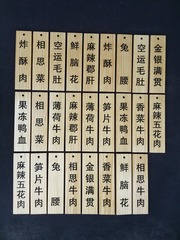 炸酥肉
相思菜
空运毛肚
鲜脑花
麻辣郡肝
兔腰
金银满贯
果冻鸭血
相思菜
薄荷牛肉
薄荷牛肉
笋片牛肉
香菜牛肉
麻辣五花肉
麻辣五花肉
笋片牛肉
兔腰
相思牛肉
金银满贯
香菜牛肉
鲜脑花
相思牛肉